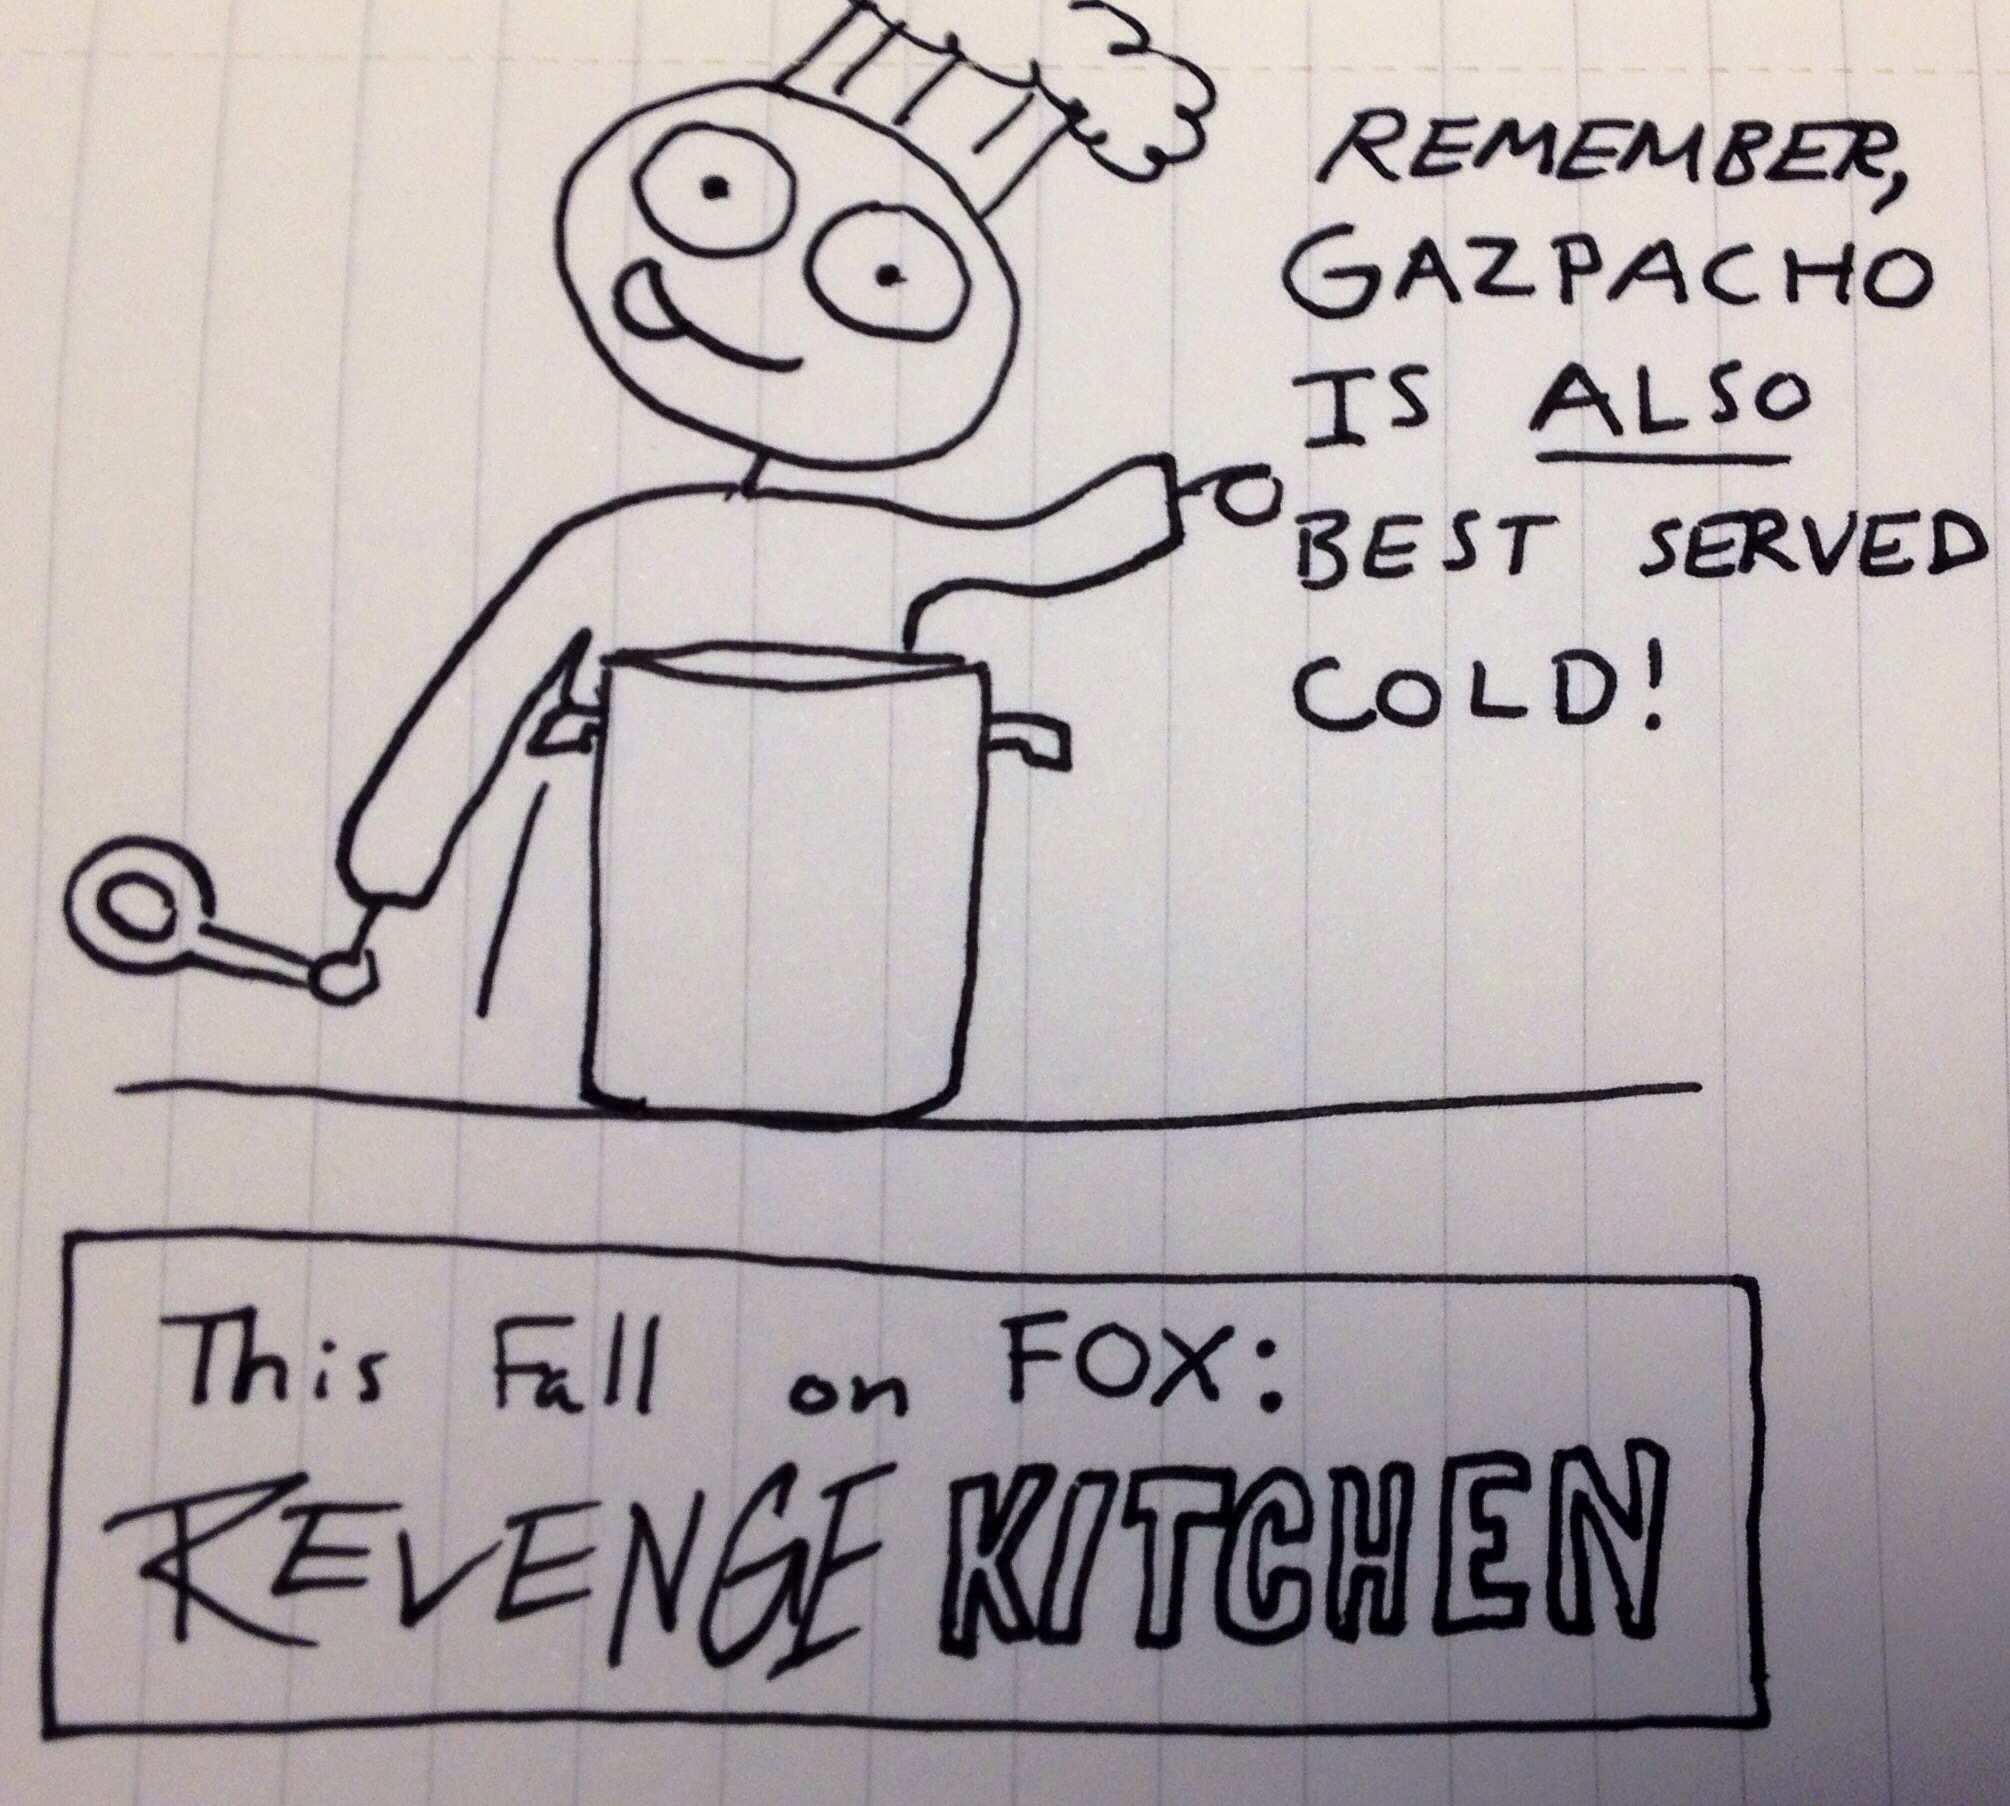 REMEMBER,
GAZPACHO
IS ALSO
BEST SERVED
COLD!
This Fall on FOX:
REVENGE KITCHEN